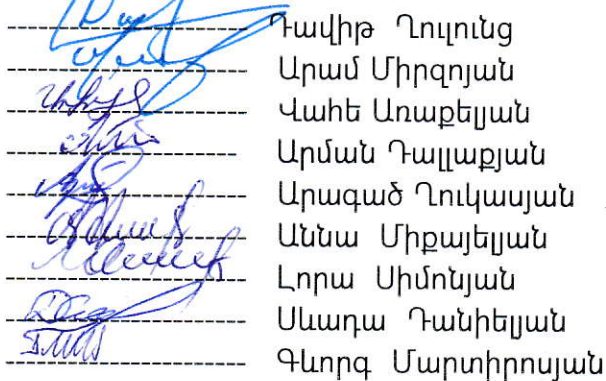 Դավիթ Ղուլունց
Արամ Միրզոյան
Վահե Առաքելյան
Արման Դալլաքյան
Արագած Ղուկասյան
Աննա Միքայելյան
Լորա Սիմոնյան
Սևադա Դանիելյան
Գևորգ Մարտիրոսյան